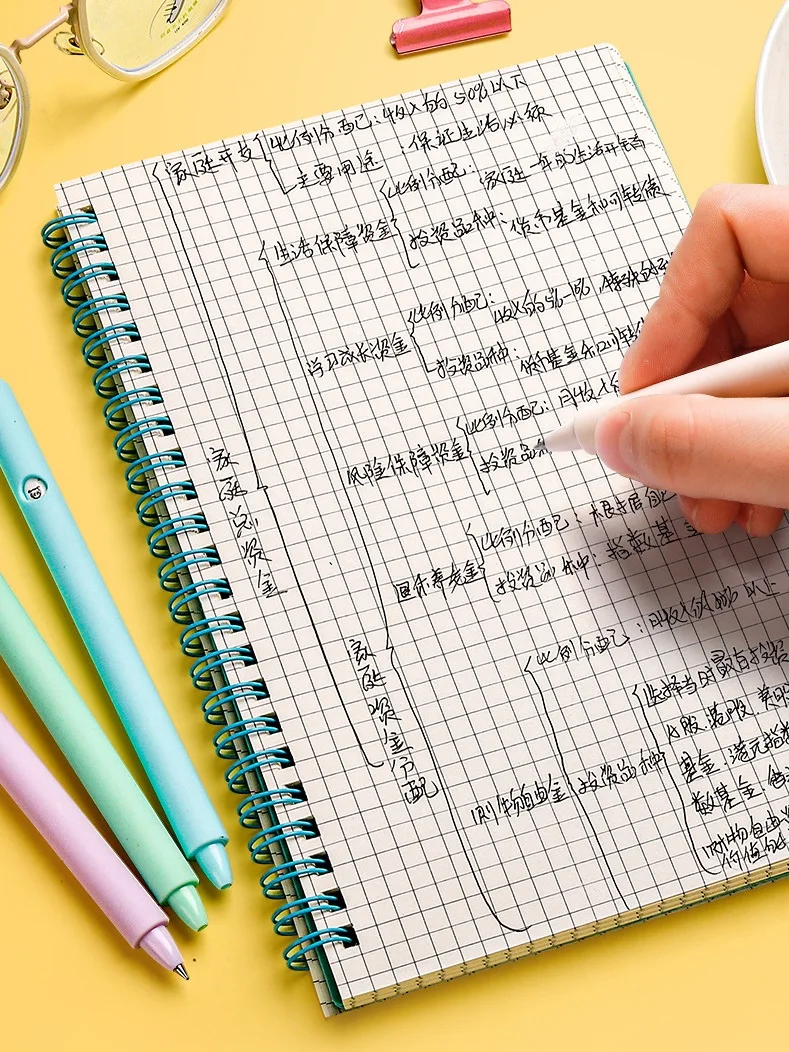 家庭开支
比例分配：收入的50%以下
主要用途：保证生活必须
生活保障资金
比例分配：家庭一年的生活开销
投资品种：货币基金和可转债
学习成长资金
比例分配：
收入的5%-10%
投资品种：货币基金和可转债
风险保障资金
比例分配：月收入
投资品
家庭总资金
养老金
比例分配：根据自己
投资品种：指数基金
家庭资金分配
比例分配：月收入的 以上
财物自由金
投资品种
选择当时最有投资
A股、港股、美股
基金、港元指数
数基金、
财物自由